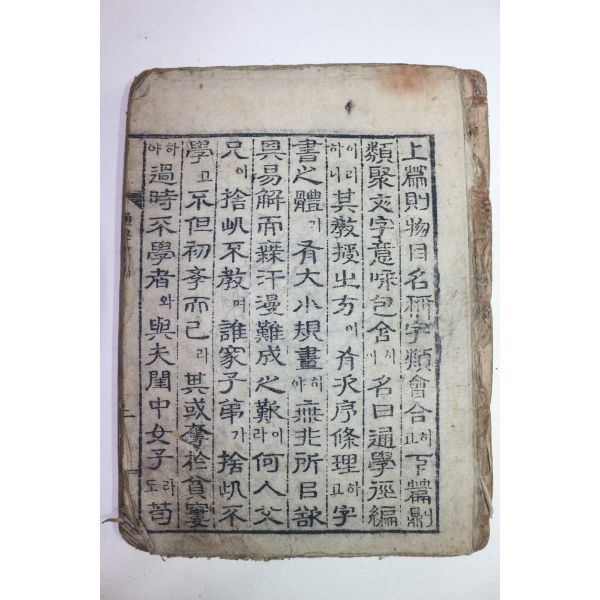 上篇則物目名稱字類會合히고下篇則
類聚文字意味包含시이名曰通學徑編
이리하니其敎授之方이有次序條理하고字
書之體기有大小規畫히야無非所以欲
其易解而無汗漫難成之歎이라何人父
兄이捨此不敎며誰家子弟가捨此不
學고不但初學而已라其或奪於貧寠
하야過時不學者와與夫閨中女子라도苟